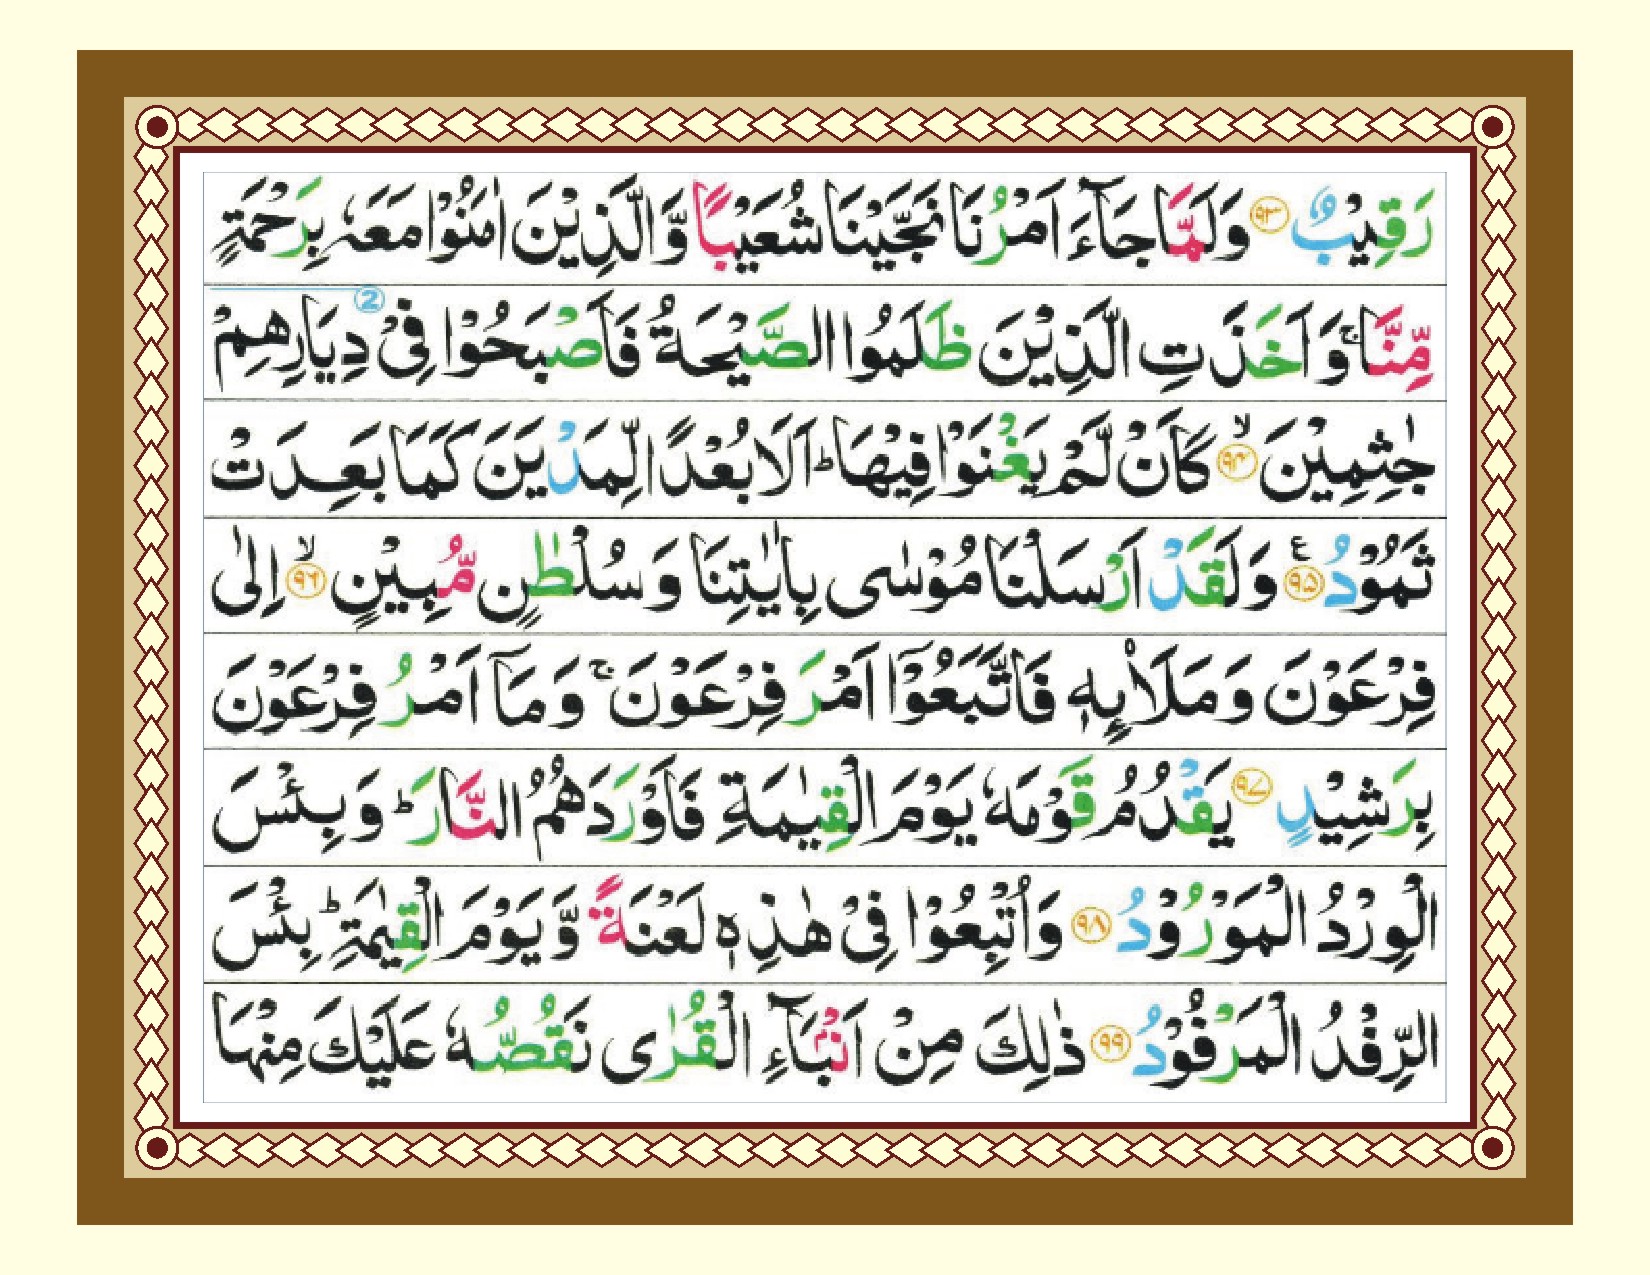 رَقِيْبٌ ﴿۹۳﴾ وَلَمَّا جَآءَ اَمْرُنَا نَجَّيْنَا شُعَيْبًا وَّ الَّذِيْنَ اٰمَنُوْا مَعَهٗ بِرَحْمَةٍ
مِّنَّا ۚ وَ اَخَذَتِ الَّذِيْنَ ظَلَمُوا الصَّيْحَةُ فَاَصْبَحُوْا فِيْ دِيَارِهِمْ 2
جٰثِمِيْنَ ﴿۹۴﴾ ۙ كَاَنْ لَّمْ يَغْنَوْا فِيْهَا ؕ اَلَا بُعْدًا لِّمَدْيَنَ كَمَا بَعِدَتْ
ثَمُوْدُ ﴿۹۵﴾ ع وَلَقَدْ اَرْسَلْنَا مُوْسٰى بِاٰيٰتِنَا وَ سُلْطٰنٍ مُّبِيْنٍ ﴿۹۶﴾ ۙ اِلٰى
فِرْعَوْنَ وَ مَلَا۟ئِهٖ فَاتَّبَعُوْۤا اَمْرَ فِرْعَوْنَ ۚ وَ مَاۤ اَمْرُ فِرْعَوْنَ
بِرَشِيْدٍ ﴿۹۷﴾ يَقْدُمُ قَوْمَهٗ يَوْمَ الْقِيٰمَةِ فَاَوْرَدَهُمُ النَّارَ ؕ وَ بِئْسَ
الْوِرْدُ الْمَوْرُوْدُ ﴿۹۸﴾ وَ اُتْبِعُوْا فِيْ هٰذِهٖ لَعْنَةً وَّ يَوْمَ الْقِيٰمَةِ ؕ بِئْسَ
الرِّفْدُ الْمَرْفُوْدُ ﴿۹۹﴾ ذٰلِكَ مِنْ اَنْۢبَآءِ الْقُرٰى نَقُصُّهٗ عَلَيْكَ مِنْهَا